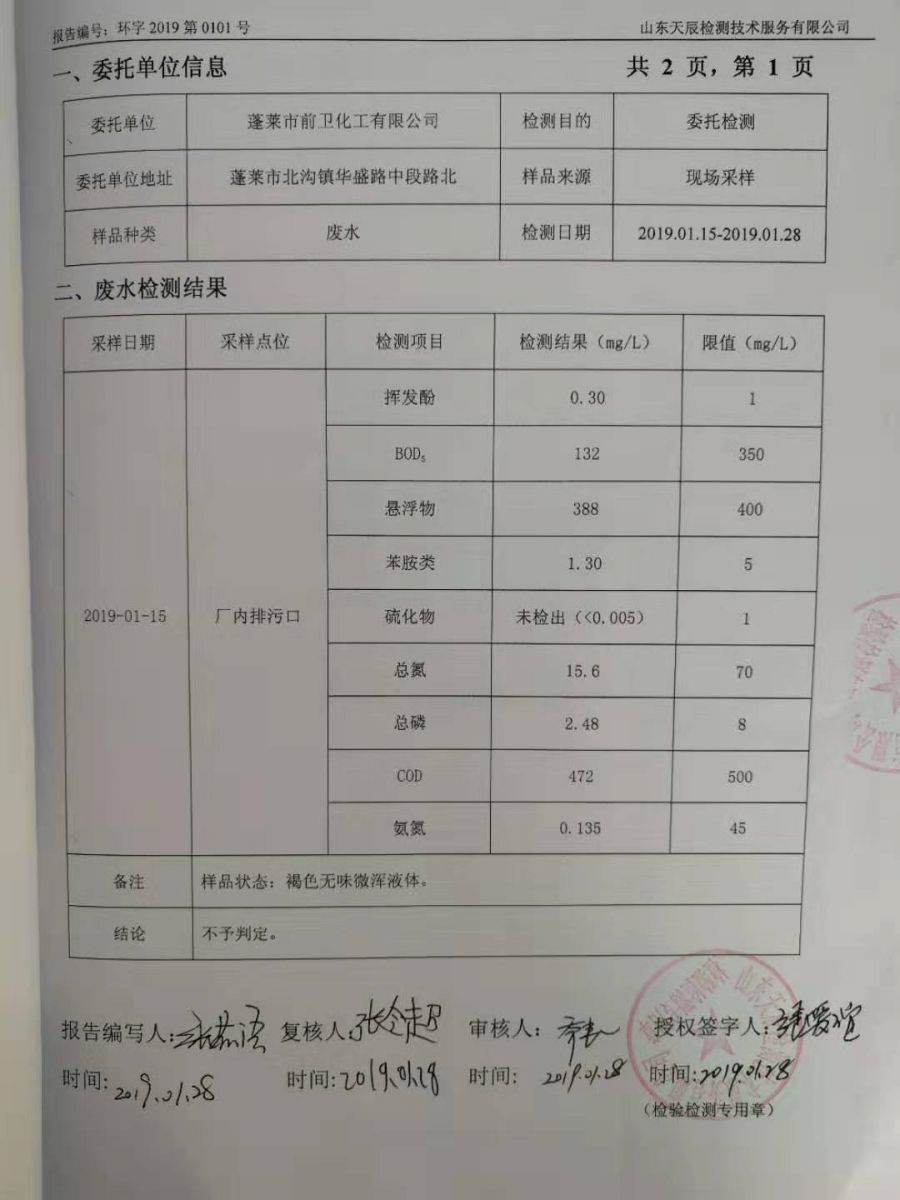 报告编号：环字 2019 第 0101 号 山东天辰检测技术服务有限公司
一、委托单位信息 共 2 页，第 1 页
委托单位 蓬莱市前卫化工有限公司 检测目的 委托检测
委托单位地址 蓬莱市北沟镇华盛路中段路北 样品来源 现场采样
样品种类 废水 检测日期 2019.01.15-2019.01.28
二、废水检测结果
采样日期 采样点位 检测项目 检测结果（mg/L） 限值（mg/L）
挥发酚 0.30 1
BOD₅ 132 350
悬浮物 388 400
苯胺类 1.30 5
2019-01-15 厂内排污口 硫化物 未检出（<0.005） 1
总氮 15.6 70
总磷 2.48 8
COD 472 500
氨氮 0.135 45
备注 样品状态：褐色无味微浑液体。
结论 不予判定。
报告编写人： 复核人： 审核人： 授权签字人：
时间：2019.01.28 时间：2019.01.28 时间： 2019.01.28 时间：2019.01.28
（检验检测专用章）